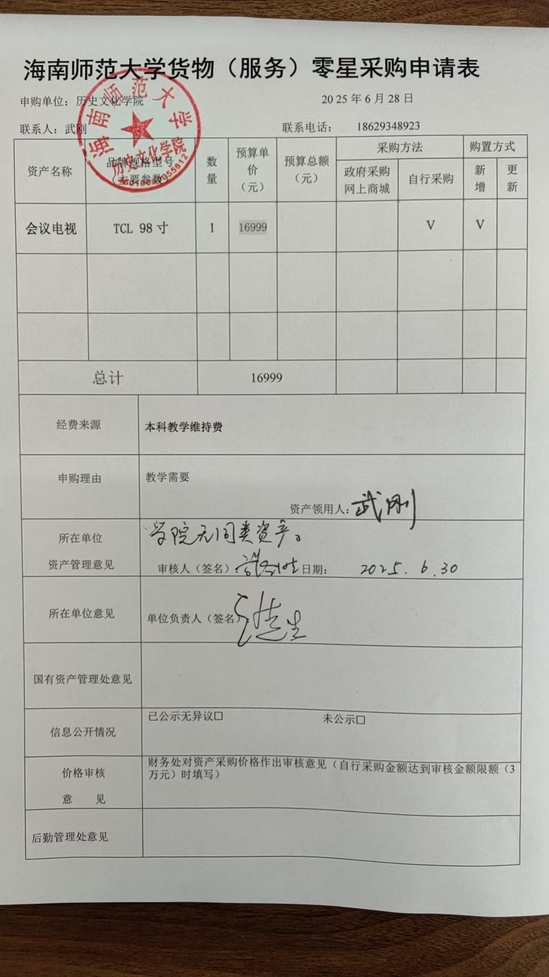 海南师范大学货物（服务）零星采购申请表
申购单位：历史文化学院 2025 年 6 月 28 日
联系人：武刚 联系电话： 18629348923
海南师范大学
历史文化学院
资产名称 品牌规格型号（主要参数） 数量 预算单价（元） 预算总额（元） 采购方法 购置方式
政府采购网上商城 自行采购 新增 更新
会议电视 TCL 98 寸 1 16999 V V
总计 16999
经费来源 本科教学维持费
申购理由 教学需要
资产领用人：武刚
所在单位 学院无同类资产。
资产管理意见 审核人（签名） 日期： 2025.6.30
所在单位意见 单位负责人（签名）
国有资产管理处意见
信息公开情况 已公示无异议☐ 未公示☐
价格审核意 见 财务处对资产采购价格作出审核意见（自行采购金额达到审核金额限额（3
万元）时填写）
后勤管理处意见